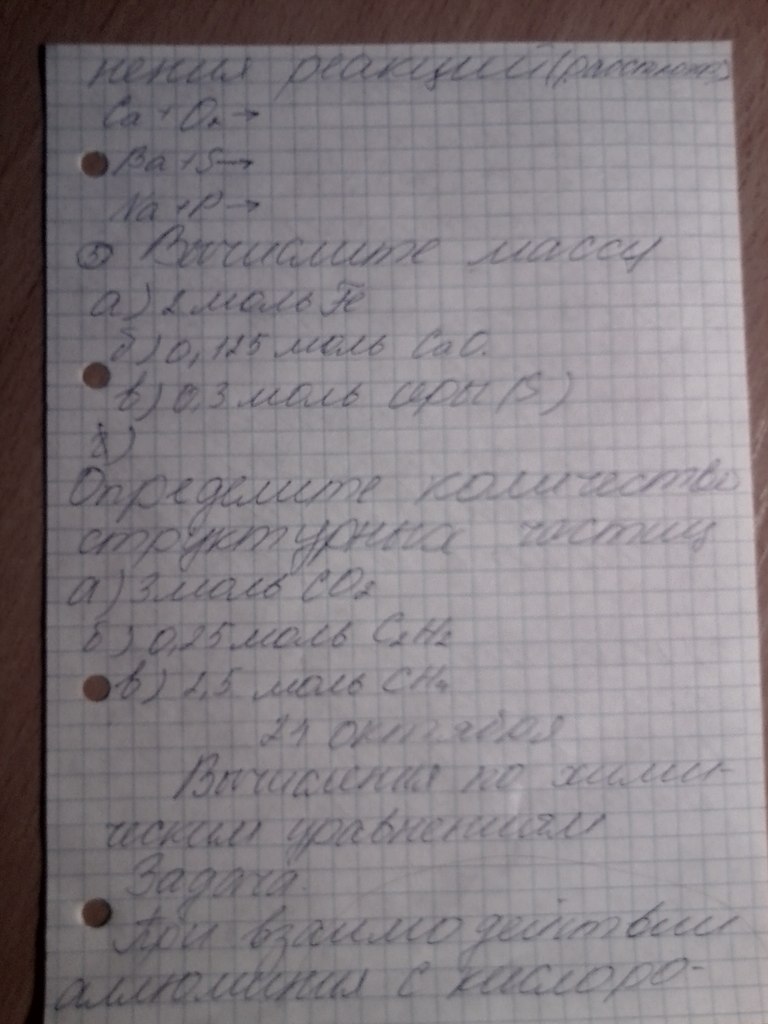 нения реакций (расставить)
Ca + O₂ →
Ba + S →
Na + P →
⑤ Вычислите массу
а) 2 моль Fe
б) 0,125 моль CaO.
в) 0,3 моль серы (S)
Определите количество
структурных частиц
а) 3 моль CO₂
б) 0,25 моль C₂H₂
в) 2,5 моль CH₄
21 октября
Вычисления по хими-
ческим уравнениям
Задача.
При взаимодействии
аллюминия с кислоро-